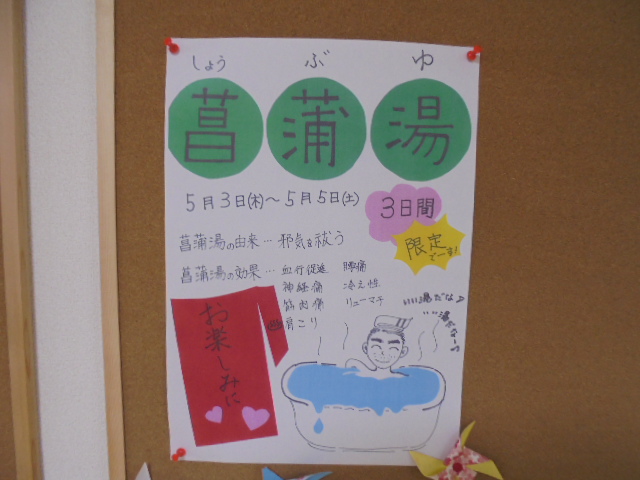 しょう ぶ ゆ
菖蒲湯
5月3日(木)〜5月5日(土)
3日間
限定
でーす!
菖蒲湯の由来…邪気を祓う
菖蒲湯の効果…血行促進 腰痛
神経痛 冷え性
筋肉痛 リューマチ
肩こり
お楽しみに
いい湯だな♪
いい湯だなー♪